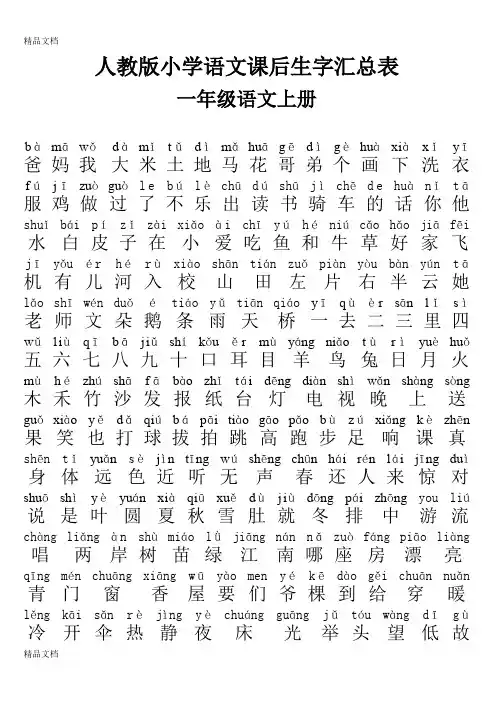 精品文档
人教版小学语文课后生字汇总表
一年级语文上册
bà mā wǒ dà mǐ tǔ dì mǎ huā gē dì gè huà xià xǐ yī
爸 妈 我 大 米 土 地 马 花 哥 弟 个 画 下 洗 衣
fú jī zuò guò le bú lè chū dú shū jì chē de huà nǐ tā
服 鸡 做 过 了 不 乐 出 读 书 骑 车 的 话 你 他
shuǐ bái pí zǐ zài xiǎo ài chī yú hé niú cǎo hǎo jiā fēi
水 白 皮 子 在 小 爱 吃 鱼 和 牛 草 好 家 飞
jī yǒu ér hé rù xiào shān tián zuǒ piàn yòu bàn yún tā
机 有 儿 河 入 校 山 田 左 片 右 半 云 她
lǎo shī wén duǒ é tiáo yǔ tiān qiáo yī qù èr sān lǐ sì
老 师 文 朵 鹅 条 雨 天 桥 一 去 二 三 里 四
wǔ liù qī bā jiǔ shí kǒu ěr mù yáng niǎo tù rì yuè huǒ
五 六 七 八 九 十 口 耳 目 羊 鸟 兔 日 月 火
mù hé zhú shā fā bào zhǐ tái dēng diàn shì wǎn shàng sòng
木 禾 竹 沙 发 报 纸 台 灯 电 视 晚 上 送
guǒ xiào yě dǎ qiú bá pāi tiào gāo pǎo bù zú xiǎng kè zhēn
果 笑 也 打 球 拔 拍 跳 高 跑 步 足 响 课 真
shēn tǐ yuǎn sè jìn tīng wú shēng chūn hái rén lái jīng duì
身 体 远 色 近 听 无 声 春 还 人 来 惊 对
shuō shì yè yuán xià qiū xuě dù jiù dōng pái zhōng you liú
说 是 叶 圆 夏 秋 雪 肚 就 冬 排 中 游 流
chàng liǎng àn shù miáo lǜ jiāng nán nǎ zuò fáng piāo liàng
唱 两 岸 树 苗 绿 江 南 哪 座 房 漂 亮
qīng mén chuāng xiāng wū yào men yé kē dào gěi chuān nuǎn
青 门 窗 香 屋 要 们 爷 棵 到 给 穿 暖
lěng kāi sǎn rè jìng yè chuáng guāng jǔ tóu wàng dī gù
冷 开 伞 热 静 夜 床 光 举 头 望 低 故
精品文档